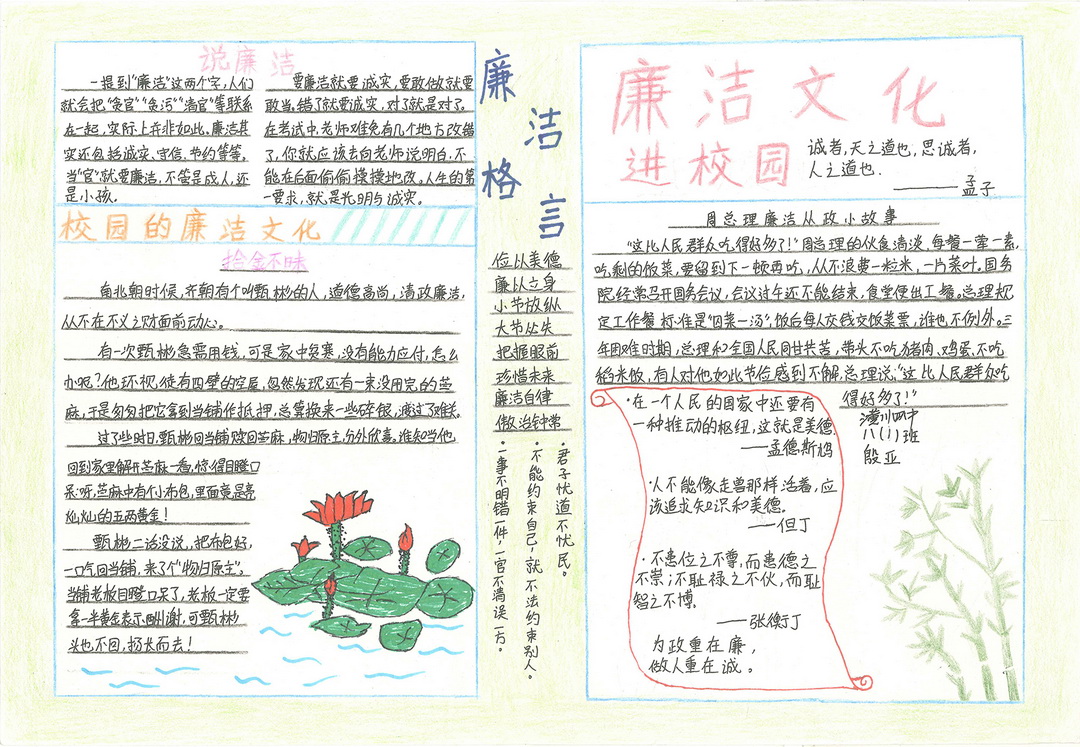 说廉洁
一提到"廉洁"这两个字,人们
就会把"贪官""贪污""清官"等联系
在一起,实际上并非如此、廉洁其
实还包括诚实、守信、节约等等。
当"官"就要廉洁,不管是成人,还
是小孩。
要廉洁就要诚实,要敢做就要
敢当,错了就要诚实,对了就是对了。
在考试中,老师难免有几个地方改错
了,你就应该去向老师说明白,不
能在后面偷偷摸摸地改。人生的第
一要求,就是光明与诚实。
校园的廉洁文化
拾金不昧
南北朝时候,齐朝有个叫甄彬的人,道德高尚,清政廉洁,
从不在不义之财面前动心。
有一次甄彬急需用钱,可是家中贫寒,没有能力应付,怎么
办呢?他环视徒有四壁的空屋,忽然发现还有一束没用完的苎
麻,于是匆匆把它拿到当铺作抵押,总算换来一些碎银,渡过了难关。
过了些时日,甄彬回当铺赎回苎麻,物归原主,分外欣喜。谁知当他
回到家里解开苎麻一看,惊得目瞪口
呆:呀,苎麻中有个小布包,里面竟是亮
灿灿的五两黄金!
甄彬二话没说,把布包好,
一口气回当铺,来了个"物归原主",
当铺老板目瞪口呆了,老板一定要
拿一半黄金表示酬谢,可甄彬
头也不回,扬长而去!
廉
洁
格
言
俭以养德
廉以立身
小节放纵
大节丛失
把握眼前
珍惜未来
廉洁自律
做治钟常
君子忧道不忧民。
·不能约束自己,就不法约束别人。
·一事不明错一件,一官不清误一方。
廉洁文化
进校园
诚者,天之道也,思诚者,
人之道也.
——孟子
周总理廉洁从政小故事
"这比人民群众吃得好多了!"周总理的伙食清淡,每餐一荤一素,
吃剩的饭菜,要留到下一顿再吃,从不浪费一粒米,一片菜叶。国务
院经常召开国务会议,会议过午还不能结束,食堂便出工餐。总理规
定工作餐标准是"四菜一汤",饭后每人交钱交饭菜票,谁也不例外。三
年困难时期,总理和全国人民同甘共苦,带头不吃猪肉、鸡蛋、不吃
稻米饭,有人对他如此节俭感到不解,总理说:"这比人民群众吃
得好多了!"
潢川四中
八(1)班
殷亚
·在一个人民的国家中还要有
一种推动的枢纽,这就是美德.
——孟德斯鸠
·人不能像走兽那样活着,应
该追求知识和美德.
——但丁
·不患位之不尊,而患德之
不崇;不耻禄之不伙,而耻
智之不博.
——张衡丁
为政重在廉,
做人重在诚。